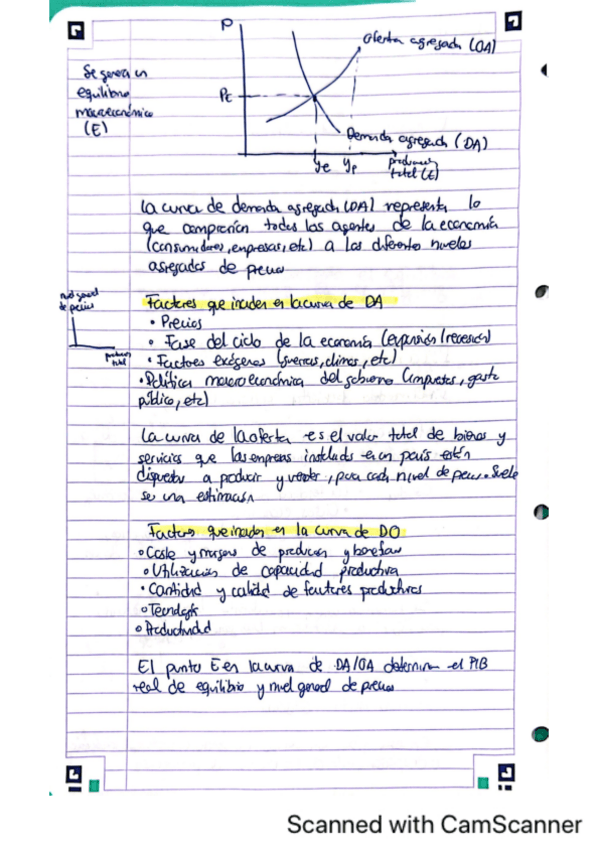 P
Oferta agregada (OA)
Se genera un
equilibrio
macroeconómico
(E)
PE
Demanda agregada (DA)
Ye Yp
total (E)
La curva de demanda agregada (DA) representa lo
que comprarían todos los agentes de la economía
(consumidores, empresas, etc) a los diferentes niveles
agregados de precios
nivel general
de precios
total
Factores que inciden en la curva de DA
• Precios
• Fase del ciclo de la economía (expansión/recesión)
• Factores exógenos (guerras, climas, etc)
• Política macroeconómica del gobierno (impuestos, gasto
público, etc)
La curva de la oferta es el valor total de bienes y
servicios que las empresas instaladas en un país están
dispuestas a producir y vender, para cada nivel de precios. Suele
ser una estimación
Factores que inciden en la curva de DO
• Coste y margen de producción y beneficios
• Utilización de capacidad productiva
• Cantidad y calidad de factores productivos
• Tecnología
• Productividad
El punto E en la curva de DA/OA determina el PIB
real de equilibrio y nivel general de precios
Scanned with CamScanner